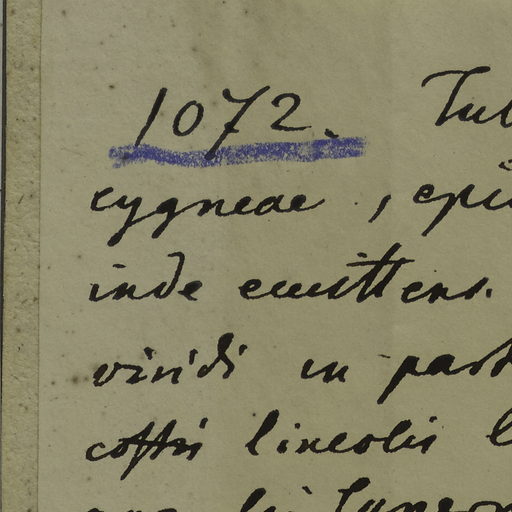 1072. Tub
cygneae, epi
inde emittens.
viridi in part
costis lineolis l